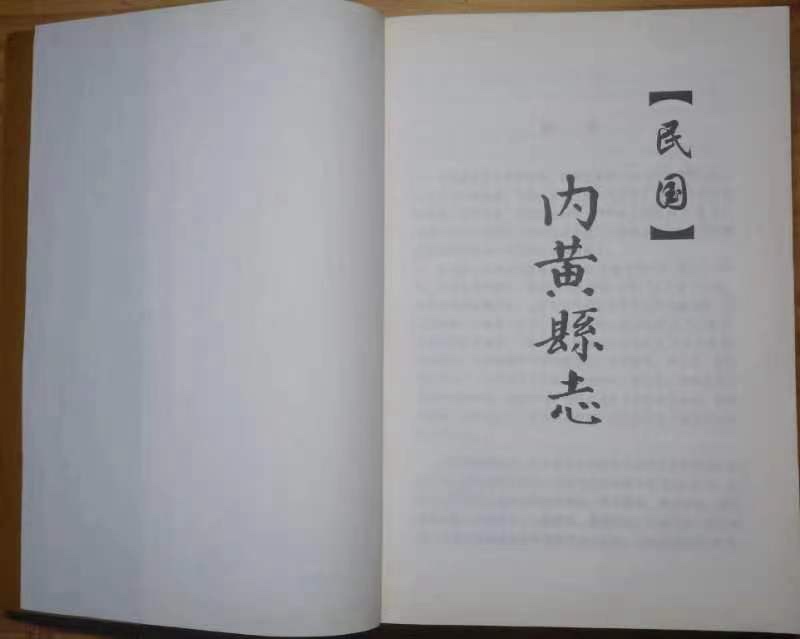 【民国】
内黄縣志